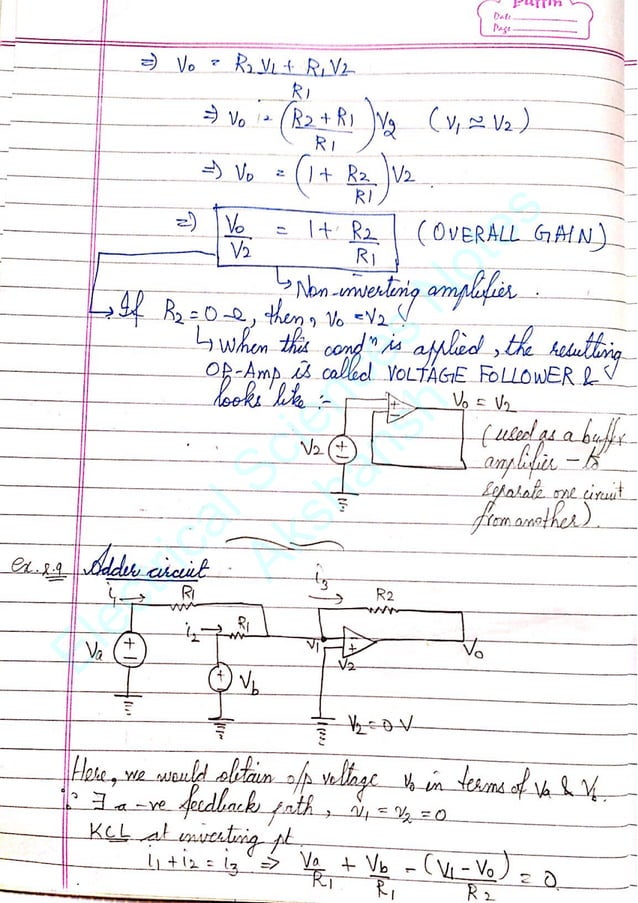 Puffin
Date
Page
⇒ V₀ = R₂V₁ + R₁V₂ / R₁
⇒ V₀ = (R₂ + R₁ / R₁) V₂ (V₁ ≈ V₂)
⇒ V₀ = (1 + R₂ / R₁) V₂
⇒ V₀ / V₂ = 1 + R₂ / R₁ (OVERALL GAIN)
↳ Non-inverting amplifier.
→ If R₂ = 0 Ω, then, V₀ = V₂.
↳ When this condⁿ is applied, the resulting
OP-Amp is called VOLTAGE FOLLOWER &
looks like :-
V₀ = V₂
V₂ + −
+ −
(used as a buffer
amplifier - to
separate one circuit
from another).
Ex. 2.9 Adder circuit
i₁ → R₁
i₂ → R₁
i₃ → R₂
Va + −
Vb +
V₁ − +
V₂
V₀
V₂ = 0 V
Here, we would obtain o/p voltage v₀ in terms of Va & Vb.
∵ ∃ a -ve feedback path, v₁ = v₂ = 0
KCL at inverting pt.
i₁ + i₂ = i₃ ⇒ Va / R₁ + Vb / R₁ − (V₁ − V₀) / R₂ = 0.
Electrical Sciences Notes
Akshansh